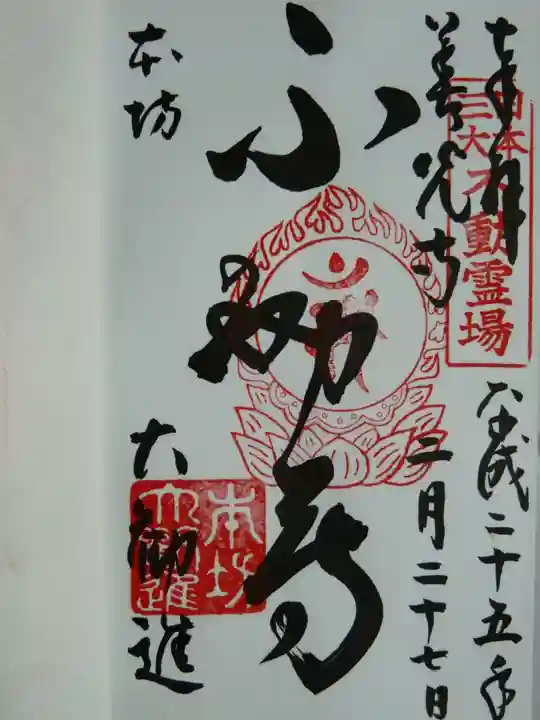 奉拝
日本
三大不動霊場
善光寺
平成二十五年
二月二十七日
不動尊
本坊
大勧進
本坊
大勧進